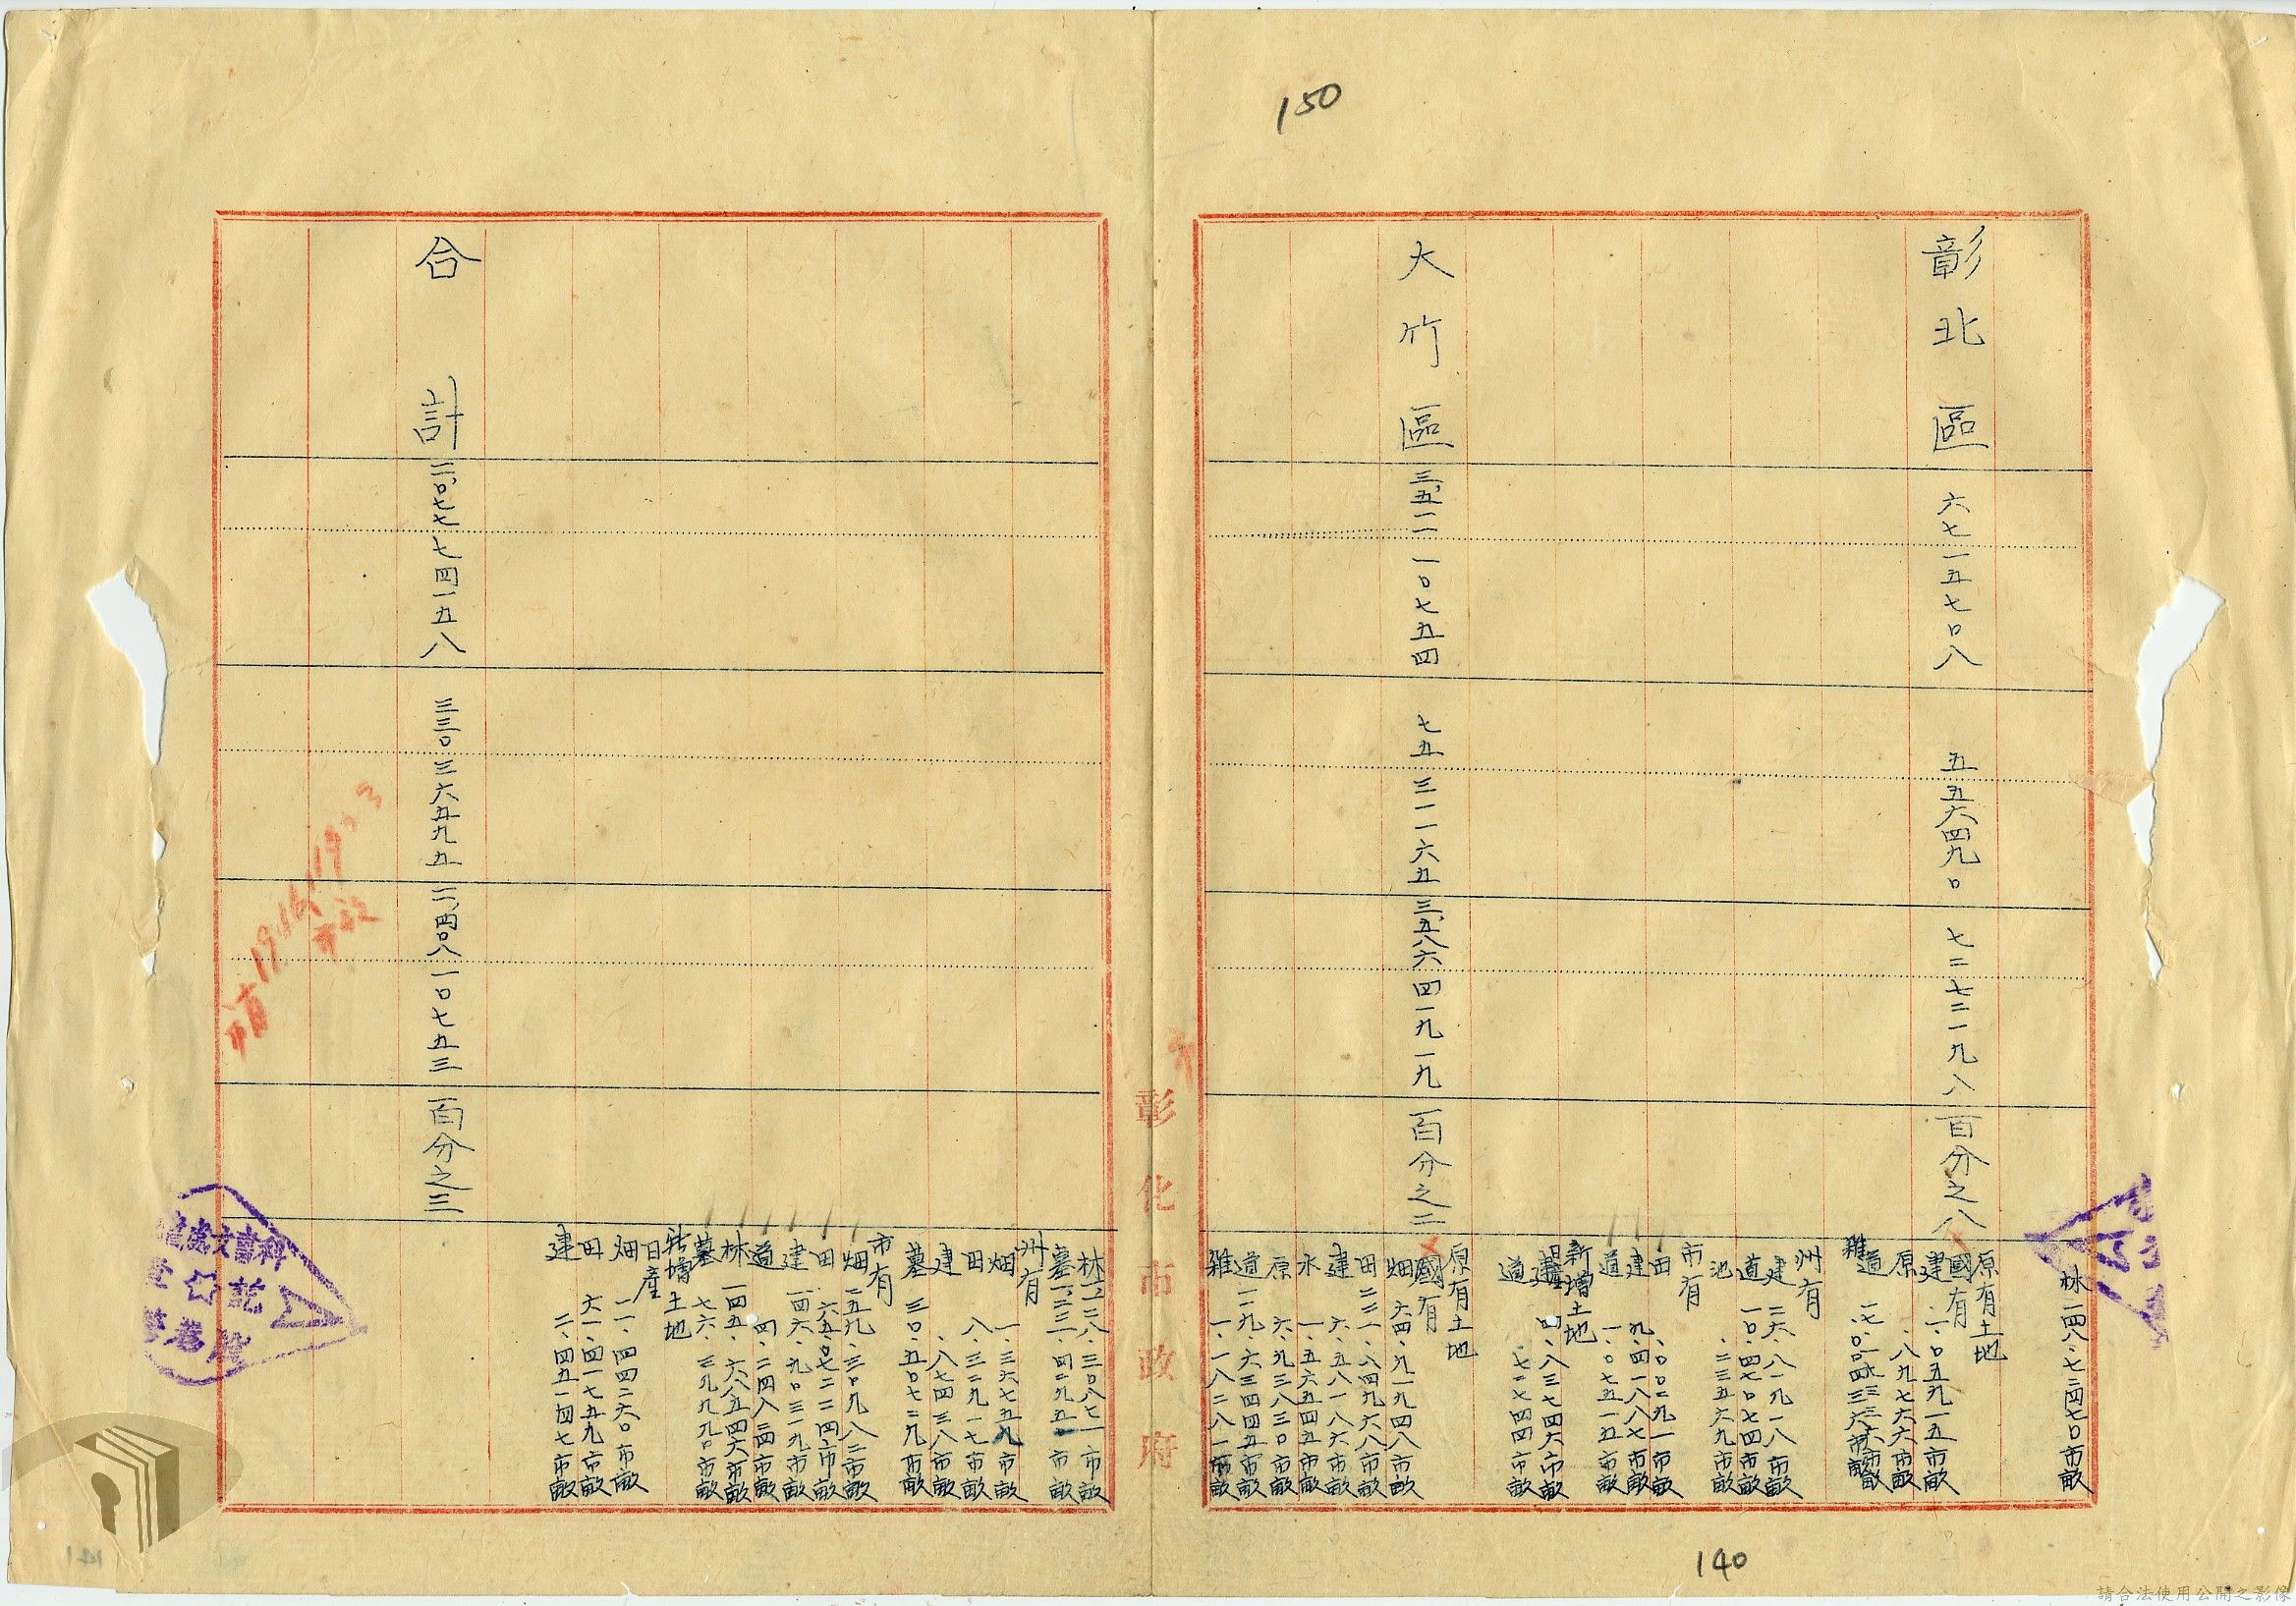 150
林 一四八、七二四七〇市畝
彰北區 六七一五七〇八 五五六四九〇 七二七二一九八 百分之八
原有土地
國有
建 二、〇五九一五市畝
原 、八九七六六市畝
道
雜
州有
建 二六、八一九一八市畝
道 一〇、四七〇七四市畝
池 、二三五六九市畝
市有
田 、〇〇二九一市畝
建 九、四一八八七市畝
道 一、〇七五一五市畝
新增土地
建 四、八三七四六市畝
道 、七二七四四市畝
大竹區 三、五一一一〇七五四 七五三一一六五 三、五八六四一九一九 百分之二
原有土地
國有
畑 六四、九一九四八市畝
田 二二一、八四九六八市畝
建 六、五八一八六市畝
水 一、五六五四五市畝
原 六、九三八三〇市畝
道 一二九、六三四四五市畝
雜 一、一八二八一市畝
彰化市政府
林 二、二八、三〇八七一市畝
墓 一、二三一、四二九五 市畝
州有
畑 一、三六七五九市畝
田 八、三二九一七市畝
建 、八七四三八市畝
墓 三〇、五〇七二九市畝
市有
畑 二五九、三〇九八二市畝
田 六五、〇七二二四市畝
建 一四六、九〇三一九市畝
道 四、二四八二四市畝
林 一四五、六八五四六市畝
墓 七六、三九九九〇市畝
新增土地
日產
畑 一一、四四二六〇市畝
田 六一、四一七五九市畝
建 二、四五一四七市畝
合計 二〇、七七七四一五八 三三〇三六五九五 二一、四〇八一〇七五三 百分之三
140
請合法使用公開之影像